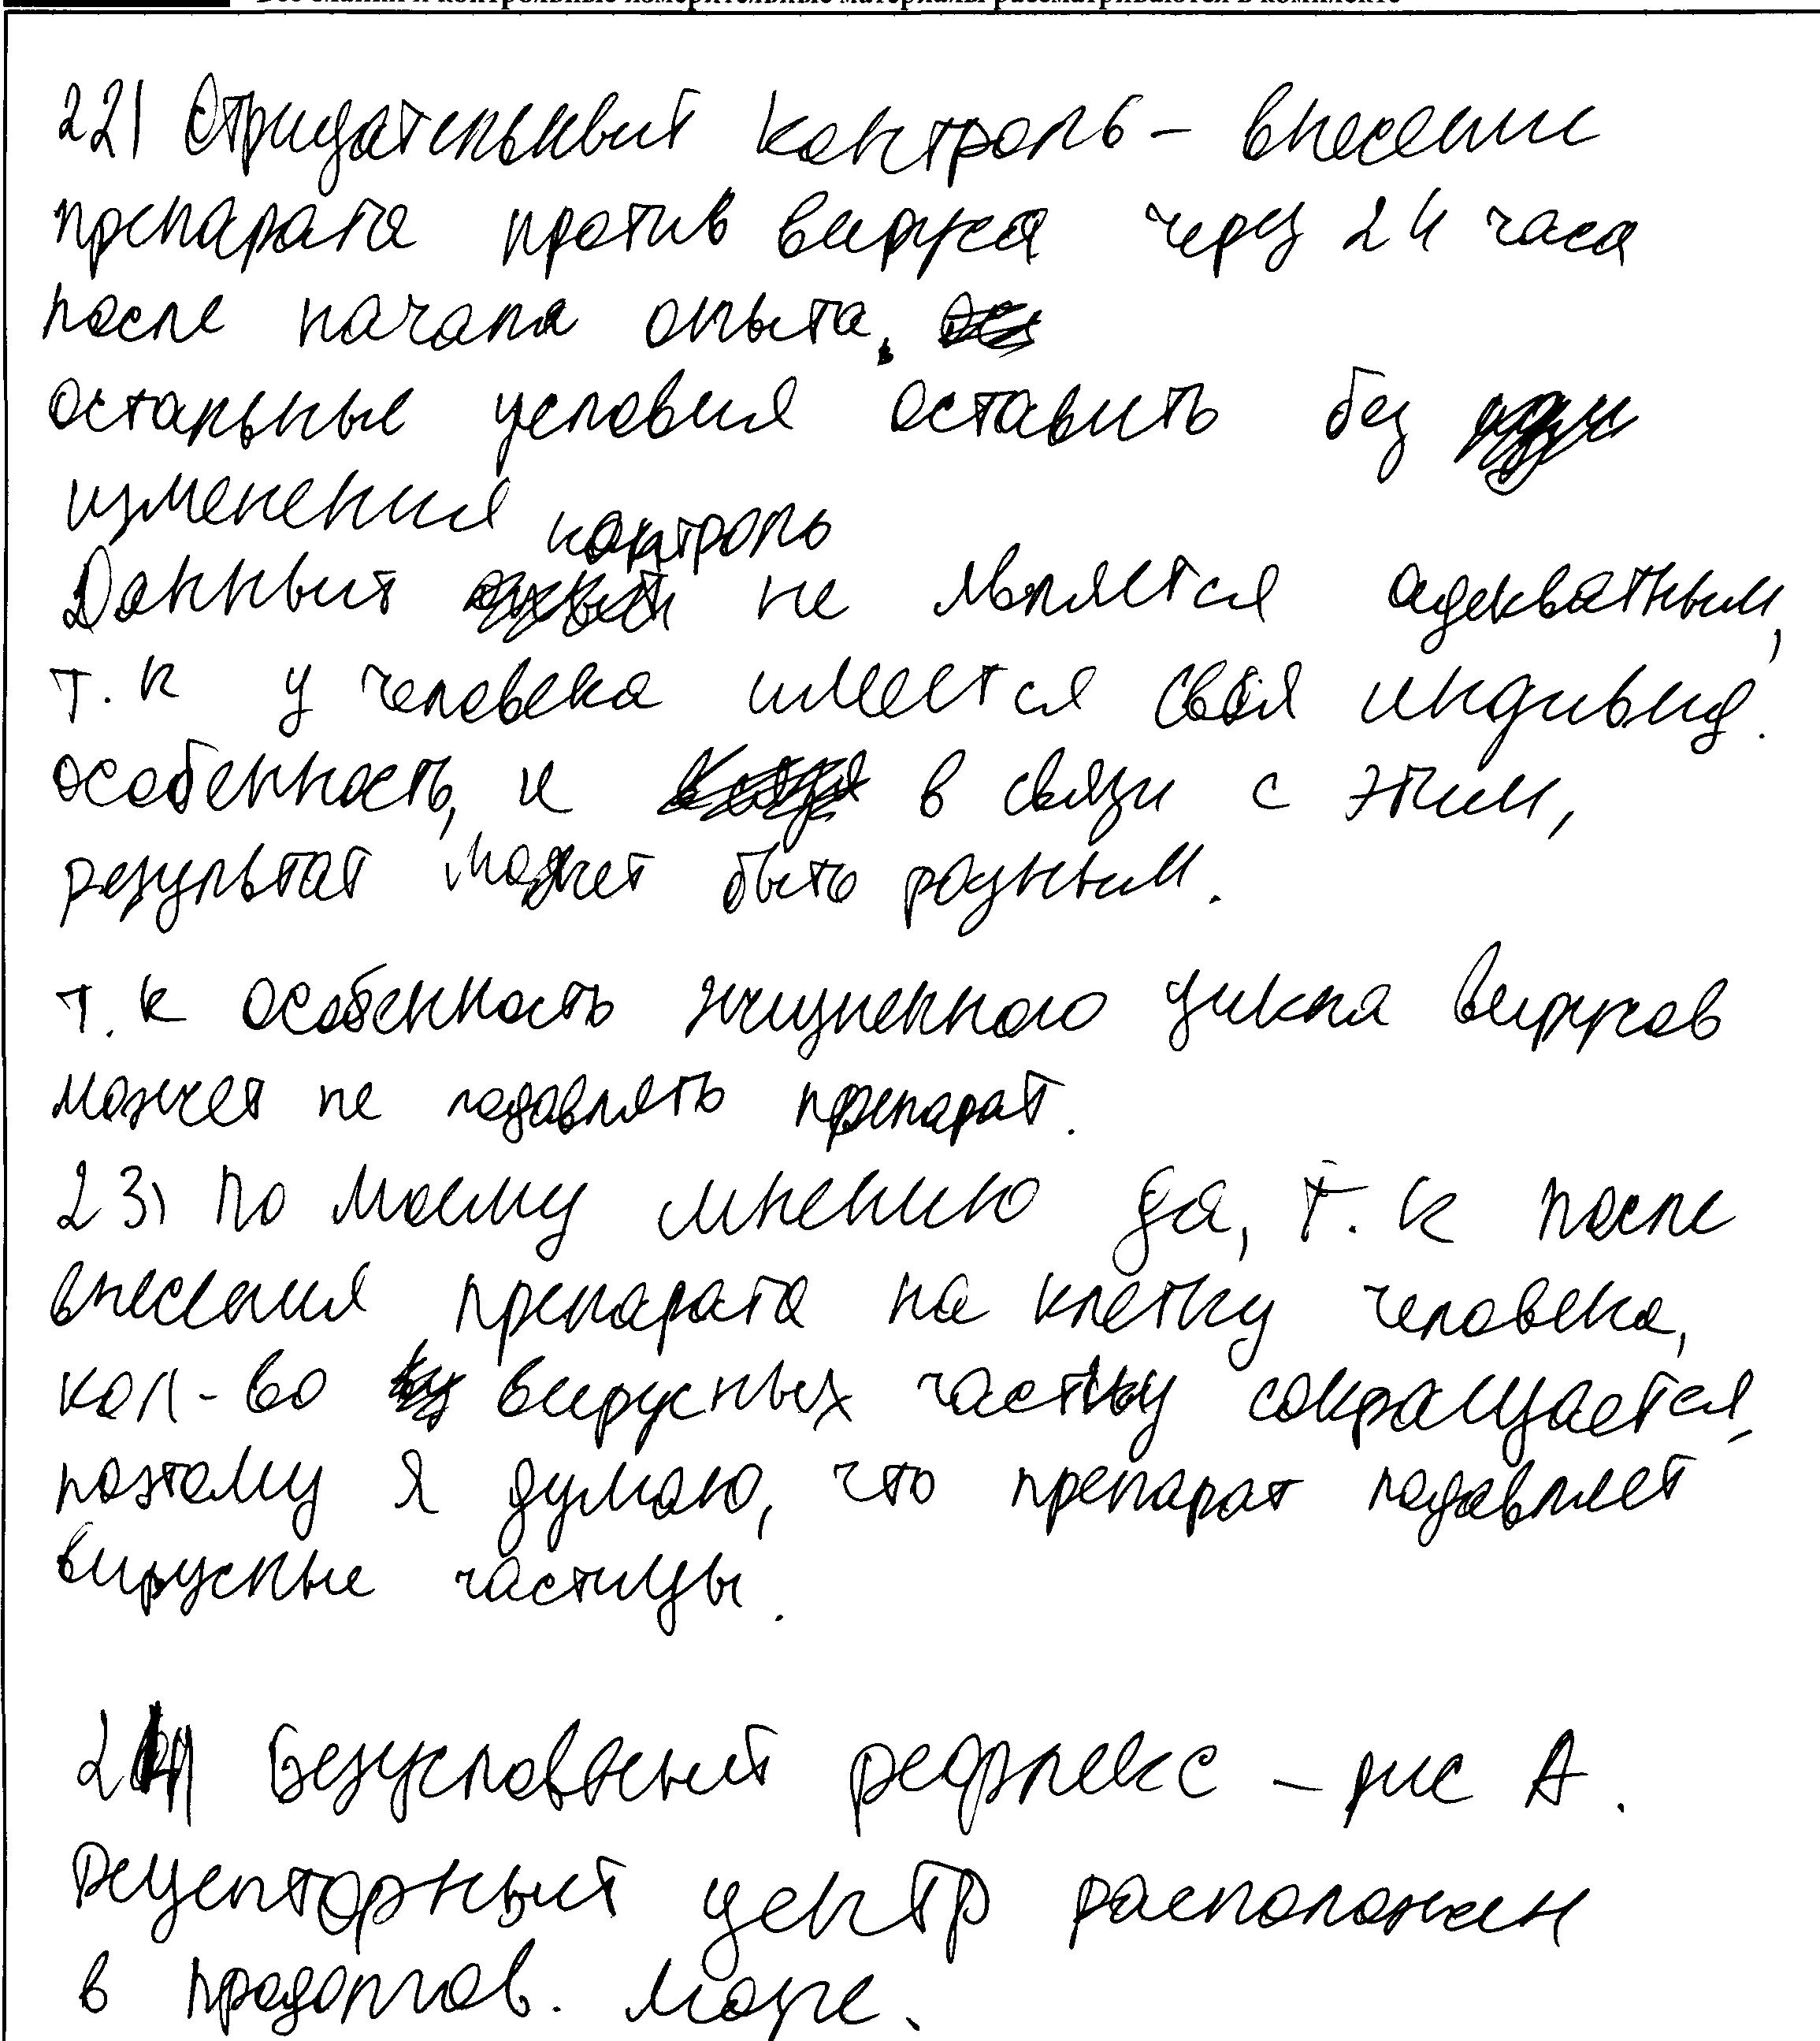 Все бланки и контрольные измерительные материалы рассматриваются в комплекте
22) Отрицательный контроль - внесение
препарата против вируса через 24 часа
после начала опыта,
остальные условия оставить без
изменения
контроль
Данный не является адекватным,
т.к у человека имеется своя индивид.
особенность, и в связи с этим,
результат может быть разным.
т.к особенность жизненного цикла вирусов
может не подавлять препарат.
23) По моему мнению да, т.к после
внесения препарата на клетку человека,
кол-во вирусных частиц сокращается,
поэтому я думаю, что препарат подавляет
вирусные частицы.
24) Безусловный рефлекс - рис А.
Рецепторный центр расположен
в продолгов. мозге.